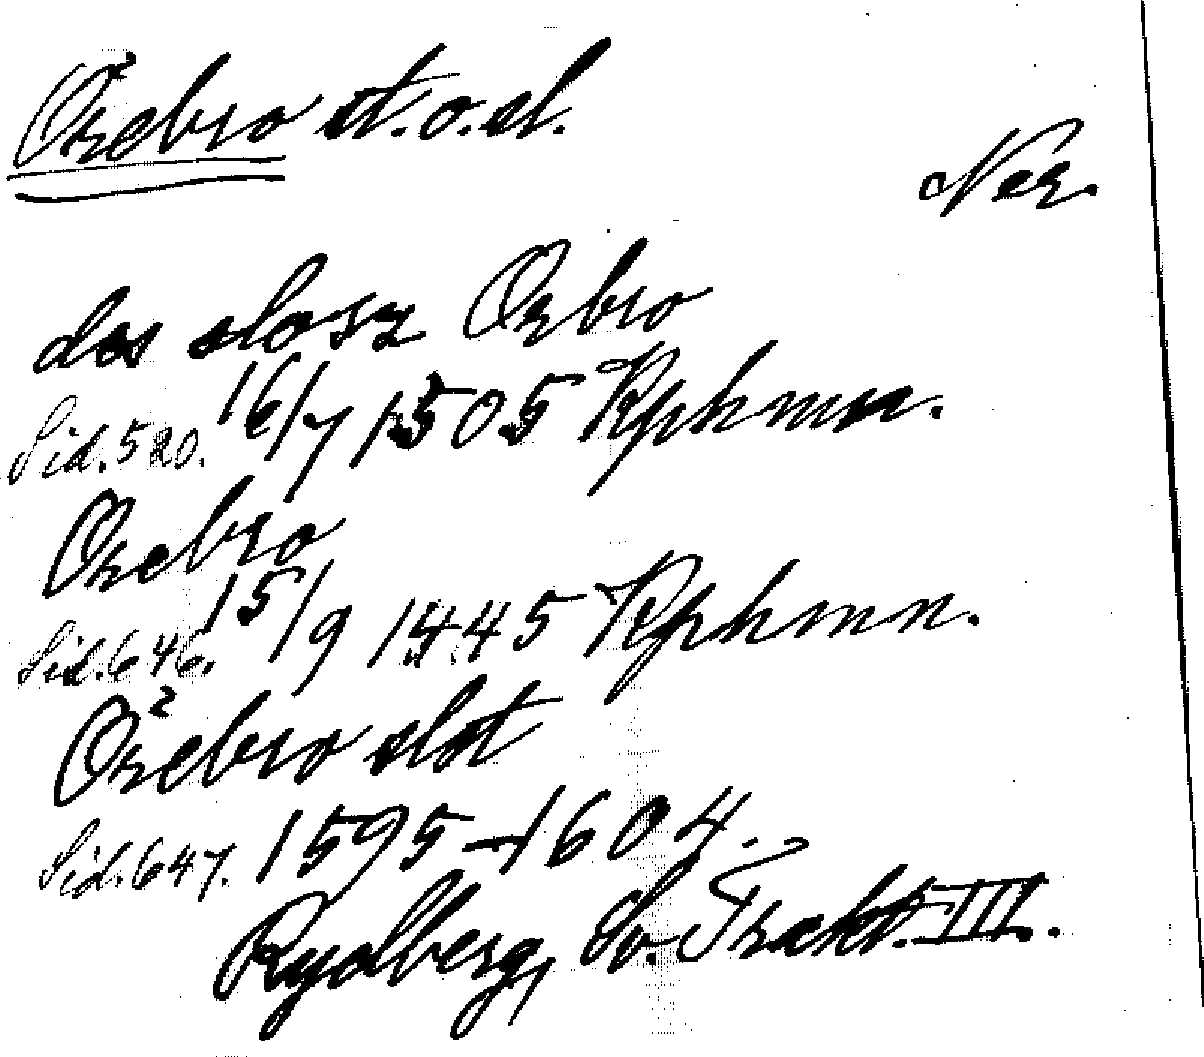 Örebro st. o. sl.
Ner.
des slosz Orbro
Sid. 520. 16/7 1505 Kphmn.
Orebro
Sid. 646. 15/9 1445 Kphmn.
Örebro slot
Sid. 647. 1595-1604.
Rydberg, Sv. Trakt. III.